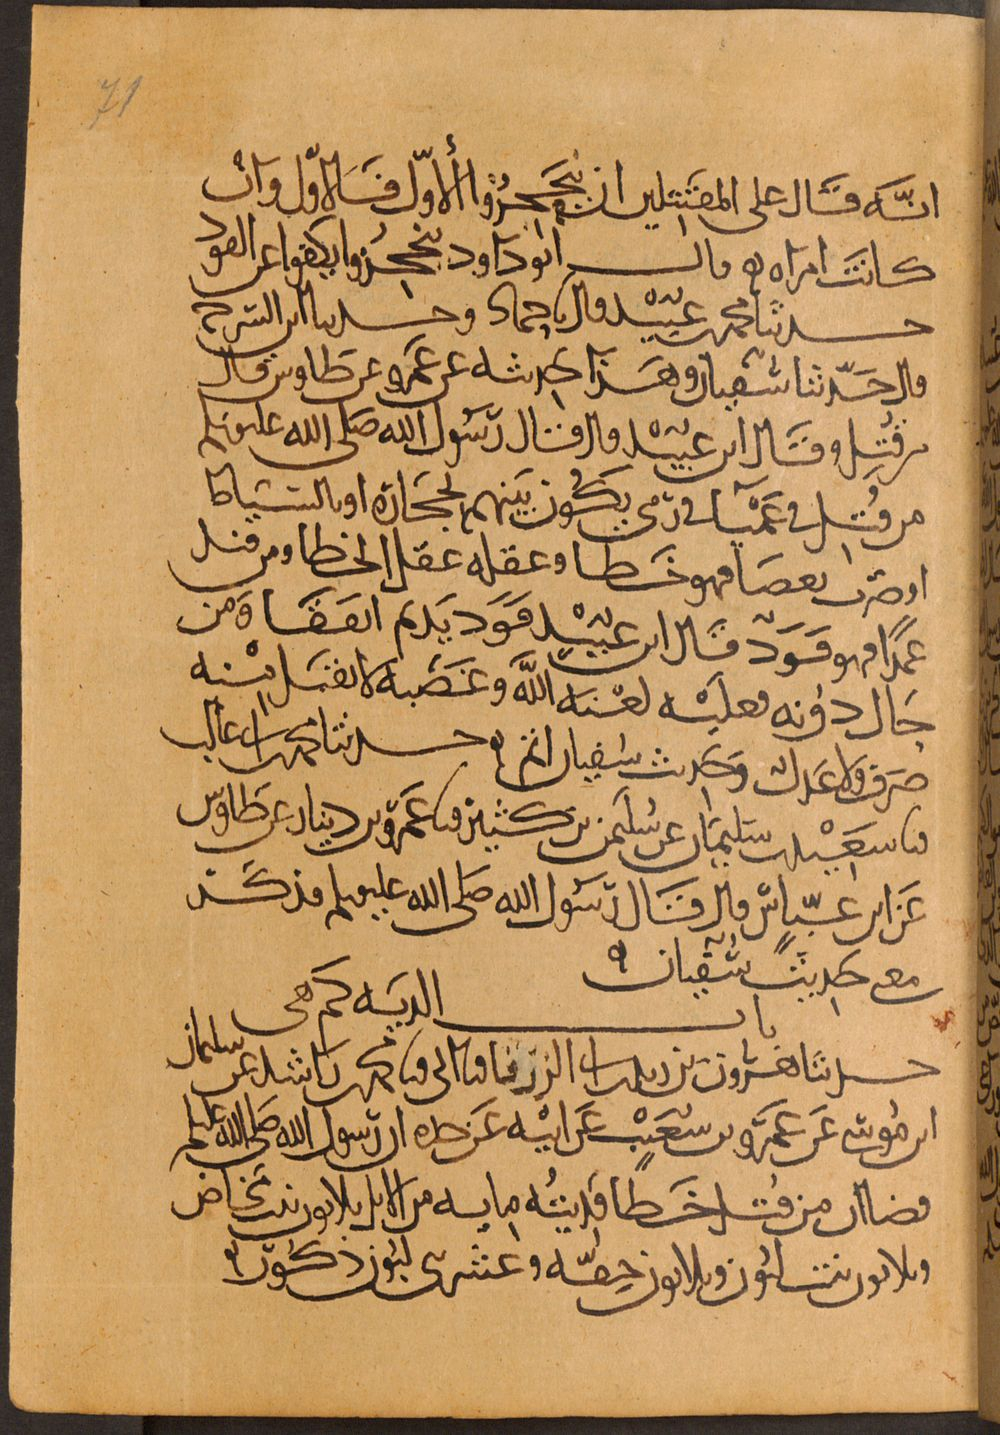 71
انه قال على المقتتلين ان ينحجزوا الاول فالاول وان
كانت امراه ه قال ابو داود ينحجزوا يكفوا عن القود
حدثنا محمد بن عبيد قال نا حماد وحدثنا ابن السرح
قال حدثنا سفيان وهذا حديثه عن عمرو عن طاوس قال
من قتل وقال ابن عبيد قال قال رسول الله صلى الله عليه وسلم
من قتل في عميا في رمي يكون بينهم بحجارة او بالسياط
او ضرب بعصا فهو خطا وعقله عقل الخطا ومن قتل
عمدا فهو قود قال ابن عبيد قود يد ثم اتفقا ومن
حال دونه فعليه لعنة الله وغضبه لا يقبل منه
صرف ولا عدل وحديث سفيان اتم ه حدثنا محمد بن ابي غالب
نا سعيد بن سليمان عن سليمن بن كثير نا عمرو بن دينار عن طاوس
عن ابن عباس قال قال رسول الله صلى الله عليه وسلم فذكر
معنى حديث سفيان ه
باب الدية كم هي
حدثنا هرون بن زيد بن ابي الزرقا نا ابي نا محمد بن راشد عن سليمان
ابن موسى عن عمرو بن شعيب عن ابيه عن جده ان رسول الله صلى الله عليه وسلم
قضا ان من قتل خطا فديته مايه من الابل ثلاثون بنت مخاض
وثلاثون بنت لبون وثلاثون حقه وعشر بني لبون ذكور ه